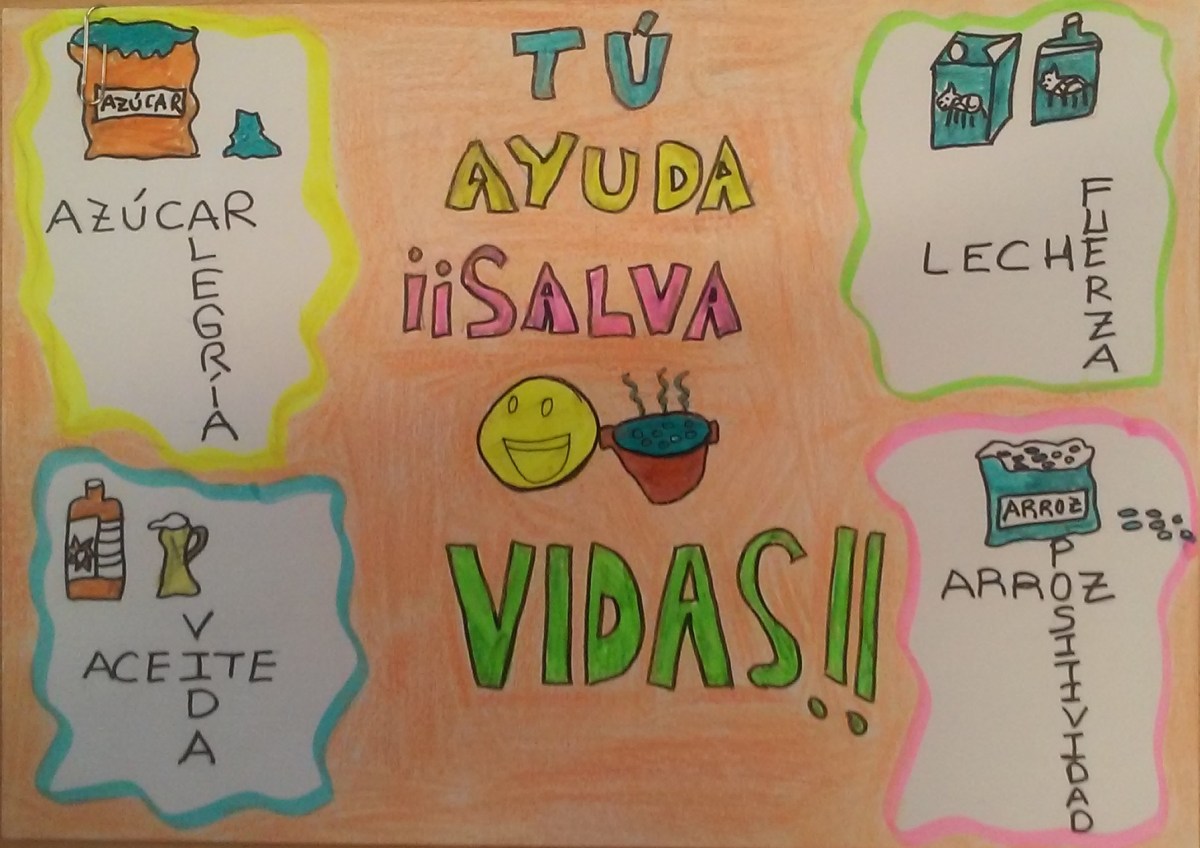 AZÚCAR
AZÚCAR
ALEGRÍA
TÚ
AYUDA
¡¡SALVA
VIDAS!!
LECHE
FUERZA
VIDA
ACEITE
ARROZ
POSITIVIDAD
ARROZ